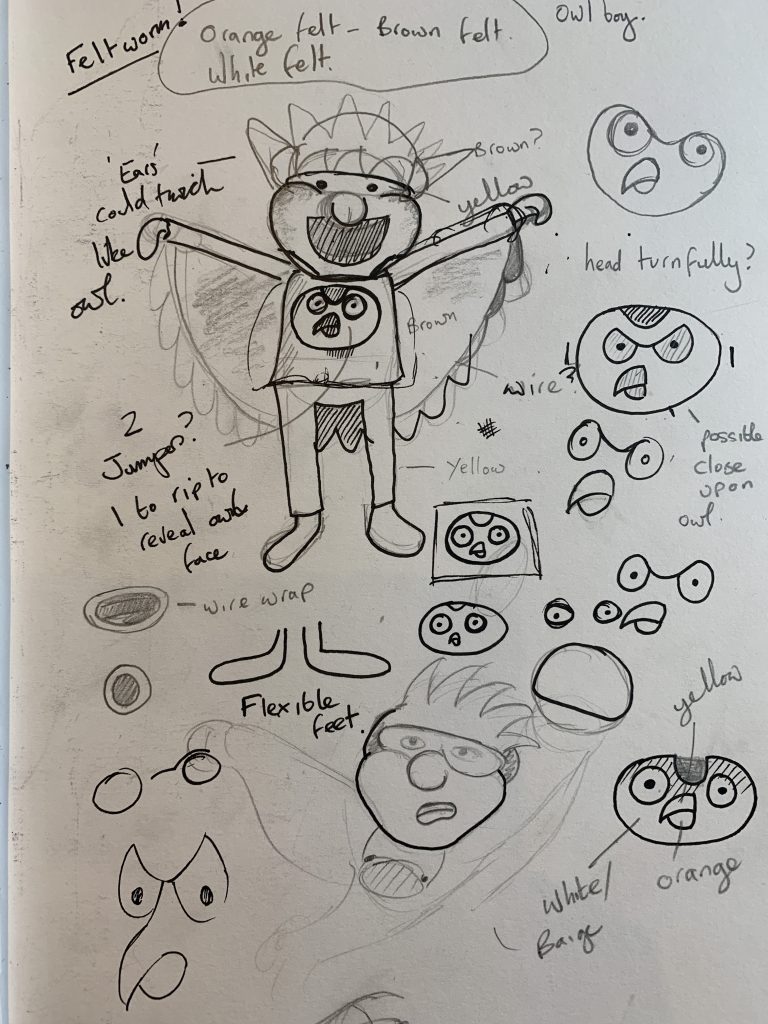 Felt worm!
Orange felt - Brown felt.
White felt.
Owl boy.
'Ears'
could twich
like
owl.
Brown?
yellow
head turn fully?
Brown
wire?
possible
close
upon
owl.
2
Jumpers?
1 to rip to
reveal owl
face
Yellow
wire wrap
Flexible
feet.
yellow
White/
Baige
orange